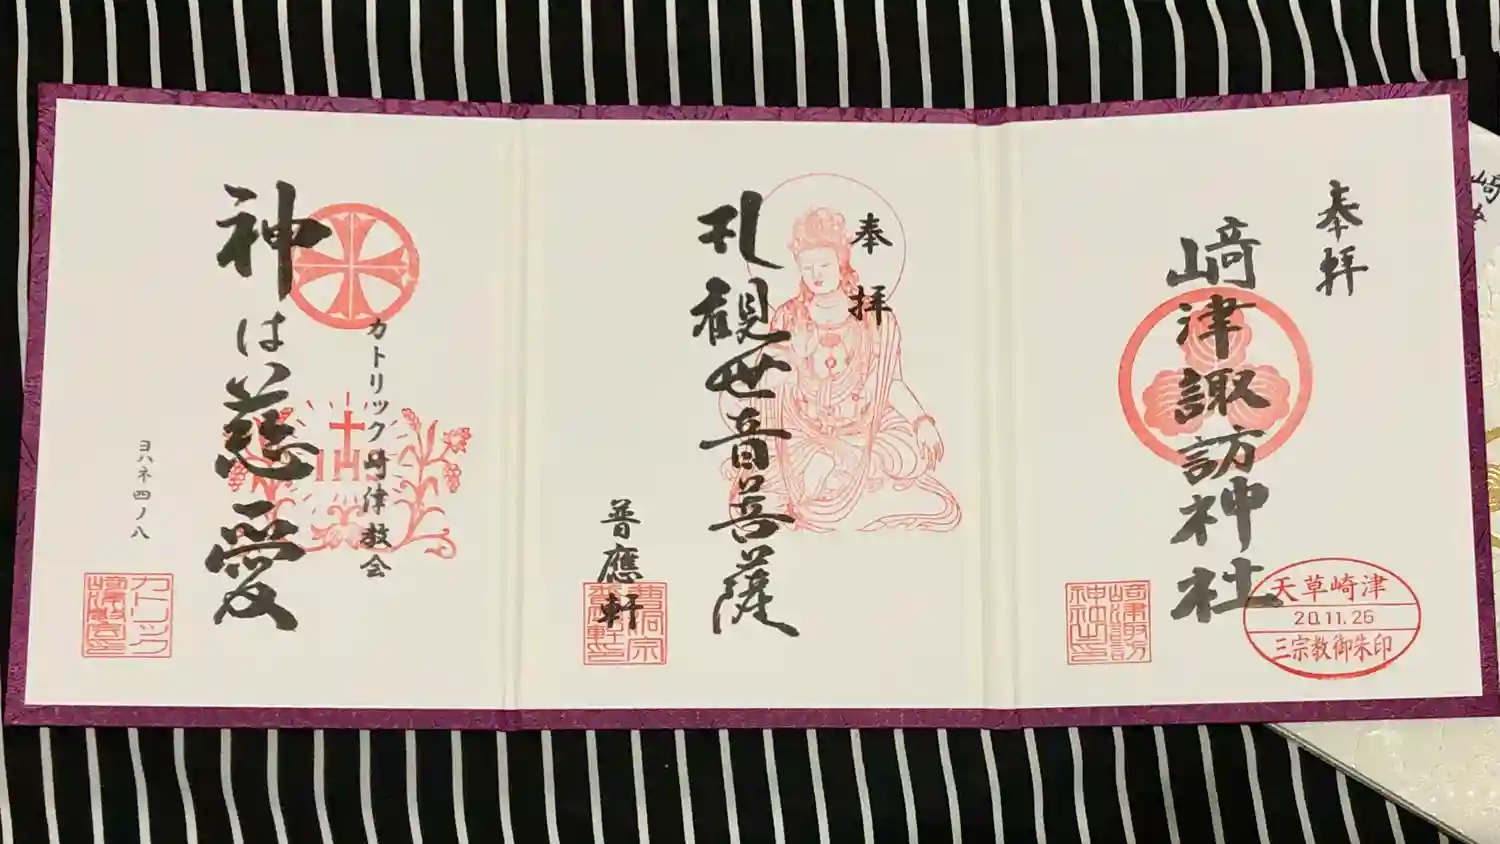 奉拝
崎津諏訪神社
天草崎津
20.11.26
三宗教御朱印
崎津諏訪
神社印
奉拝
礼観世音菩薩
普應軒
曹洞宗
普應軒印
カトリック崎津教会
IHS
神は慈愛
ヨハネ四ノ八
カトリック
崎津教会印